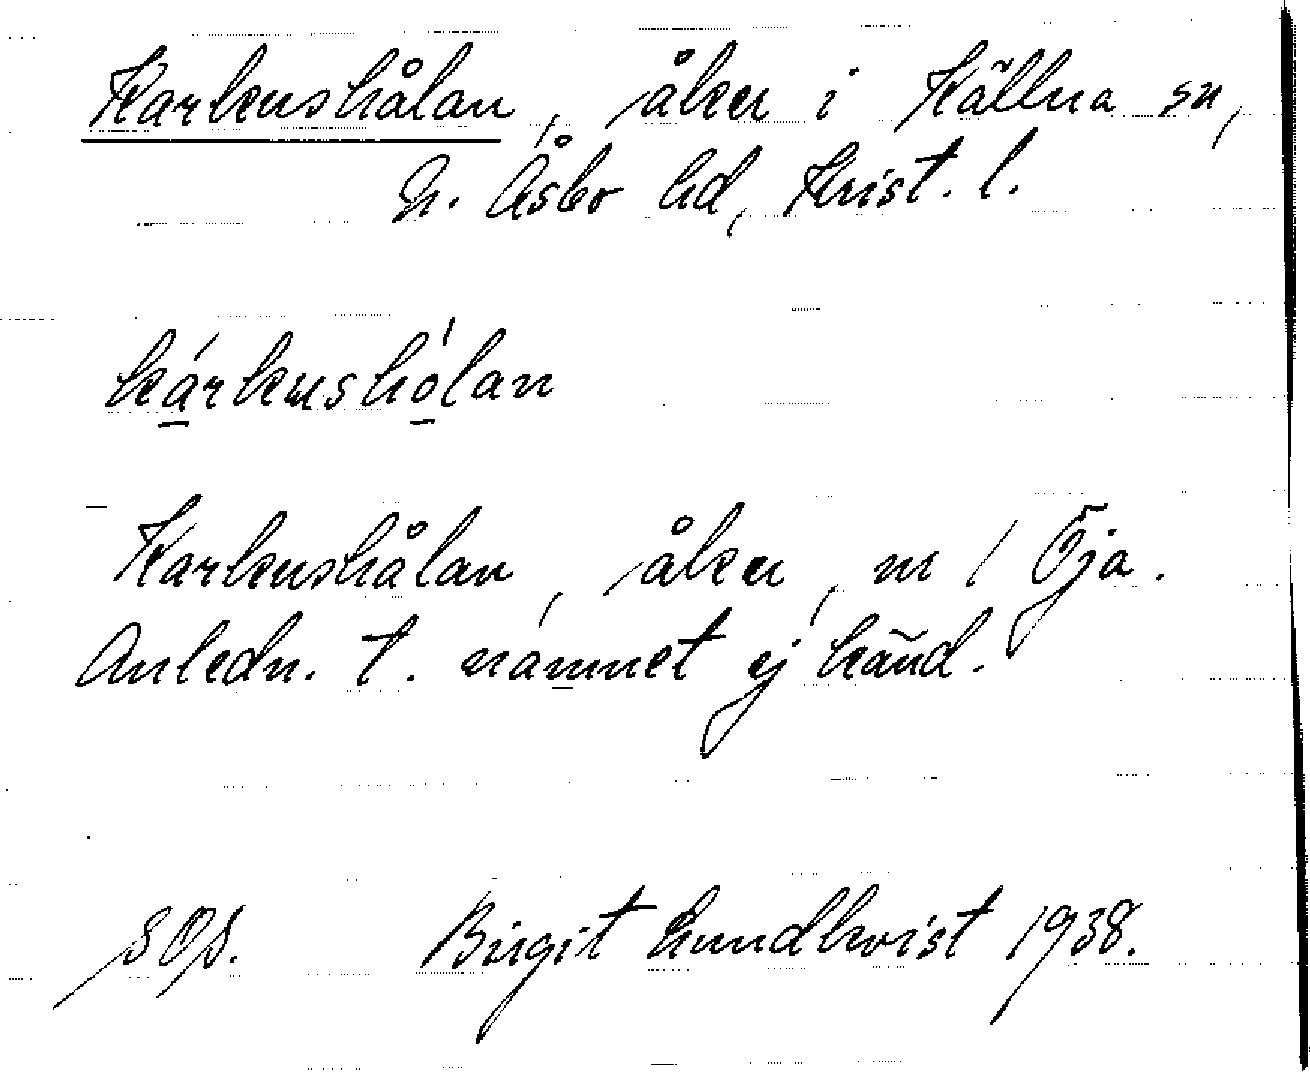 Karkenshålan, åker i Källna sn,
N. Åsbo hd, Krist. l.
kárkenshólan
Karkenshålan, åker, m / Öja.
Anledn. t. namnet ej känd.
Birgit Lundkvist 1938.